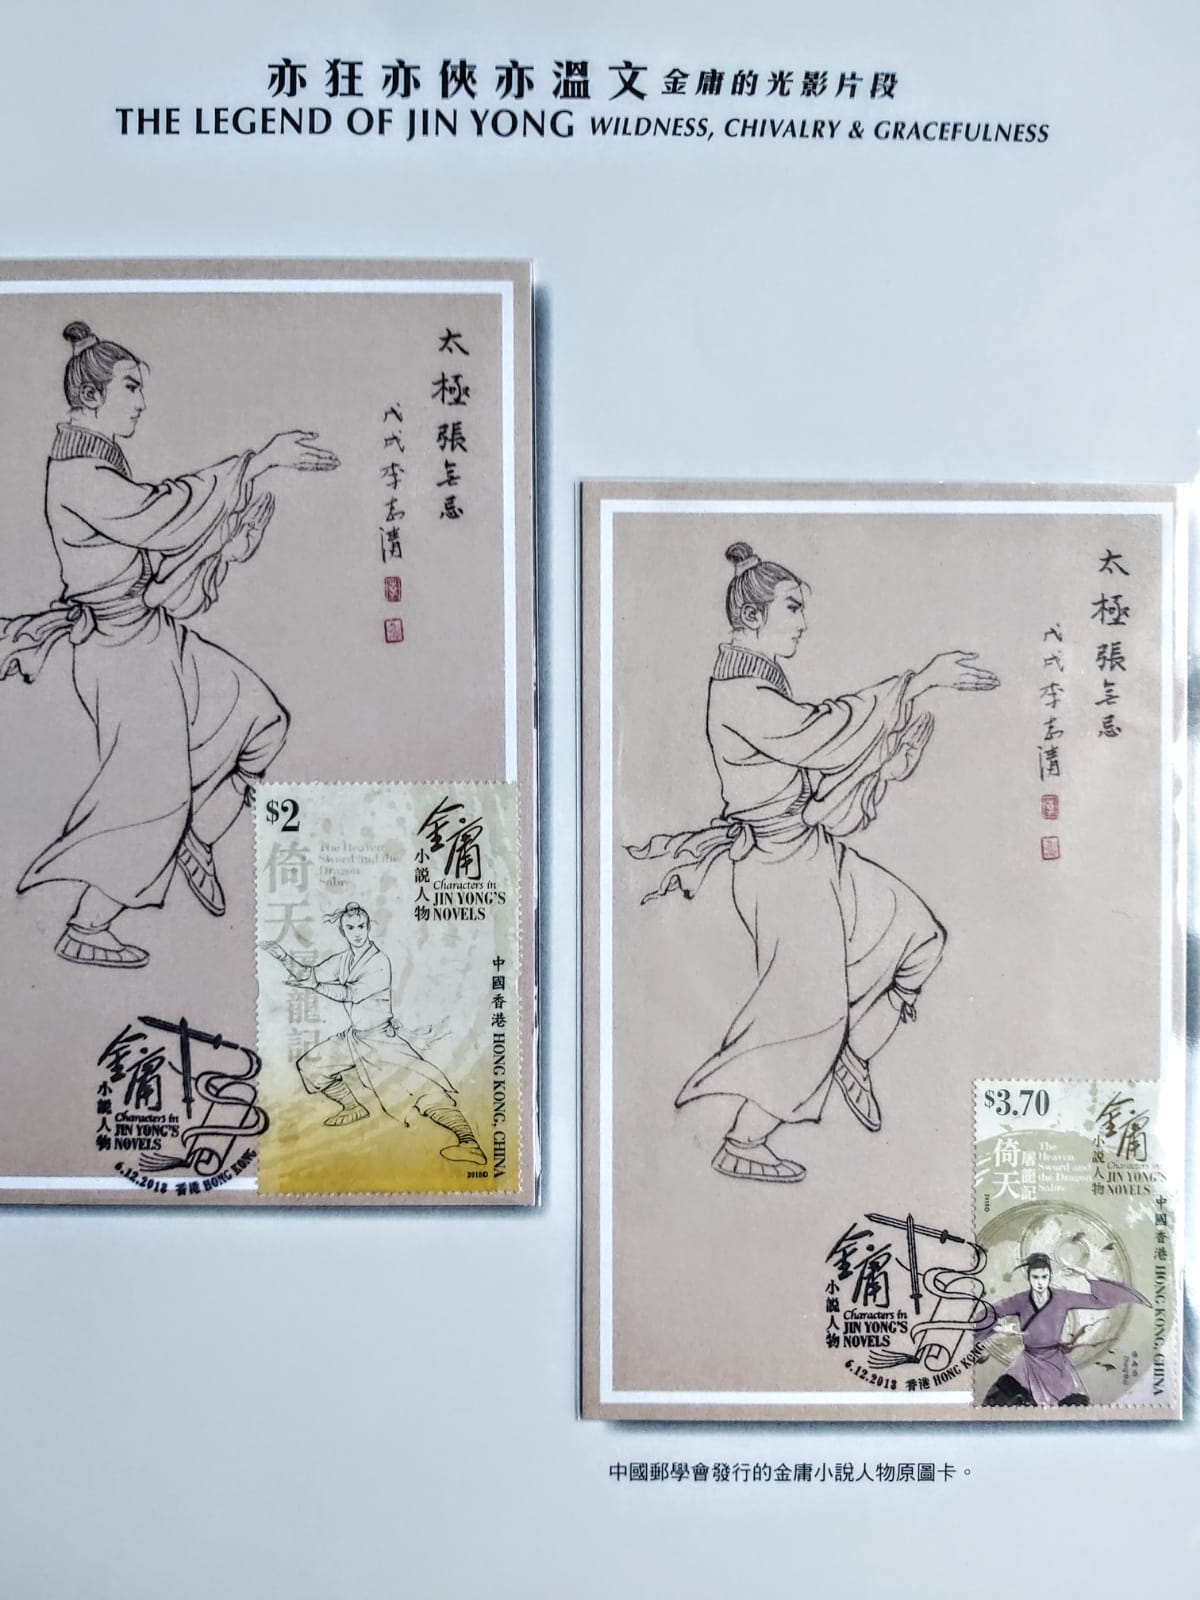 亦狂亦俠亦溫文 金庸的光影片段
THE LEGEND OF JIN YONG WILDNESS, CHIVALRY & GRACEFULNESS
太極張無忌
戊戌李志清
$2
倚天屠龍記
The Heaven
Sword and the
Dragon
Sabre
金庸
小說人物
Characters in
JIN YONG'S
NOVELS
中國香港 HONG KONG, CHINA
2018©
金庸
小說人物
Characters in
JIN YONG'S
NOVELS
6.12.2018 香港 HONG KONG
太極張無忌
戊戌李志清
$3.70
倚天屠龍記
The
Heaven
Sword and
the Dragon
Sabre
2018©
金庸
小說人物
Characters in
JIN YONG'S
NOVELS
中國香港 HONG KONG, CHINA
張無忌
金庸
小說人物
Characters in
JIN YONG'S
NOVELS
6.12.2018 香港 HONG KONG
中國郵學會發行的金庸小說人物原圖卡。